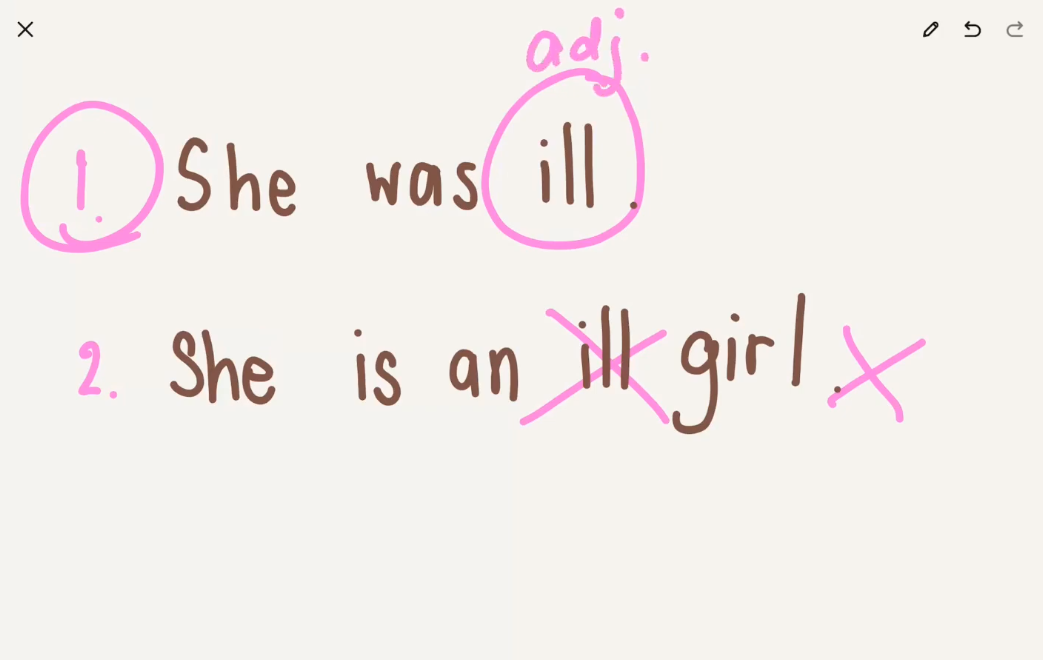 adj.
1. She was ill.
2. She is an ill girl.